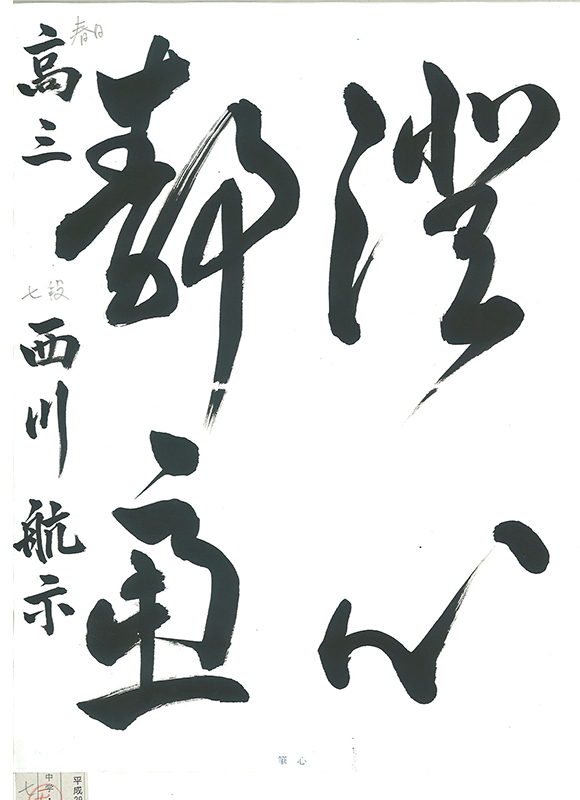 澄心
静慮
春日
高三
七段
西川 航示
筆 心
平成
中学
七